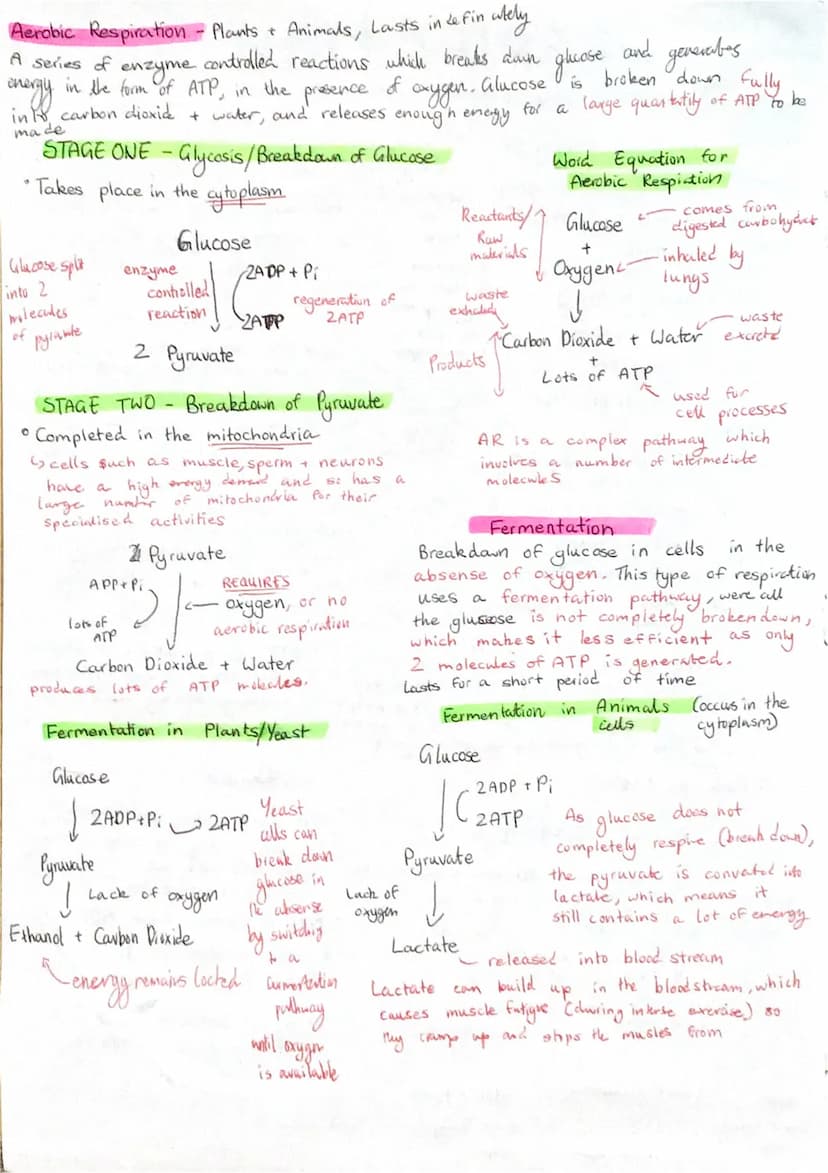 Aerobic Respiration - Plants + Animals, Lasts indefinitely
A series of enzyme controlled reactions which breaks down glucose and generates
energy in the form of ATP, in the presence of oxygen. Glucose is broken down fully
into carbon dioxide + water, and releases enough energy for a large quantity of ATP to be
made
STAGE ONE - Glycosis/Breakdown of Glucose
• Takes place in the cytoplasm
Glucose
Glucose split
into 2
molecules
of pyruvate
enzyme
controlled
reaction
2ADP + Pi
2ATP
regeneration of
2ATP
2 Pyruvate
STAGE TWO - Breakdown of Pyruvate
• Completed in the mitochondria
↳ cells such as muscle, sperm + neurons
have a high energy demand and so has a
large number of mitochondria for their
specialised activities
Pyruvate
ADP + Pi
lots of
ATP
REQUIRES
oxygen, or no
aerobic respiration
Carbon Dioxide + Water
produces lots of ATP molecules.
Fermentation in Plants/Yeast
Glucose
2ADP+Pi → 2ATP
Pyruvate
Lack of oxygen
Ethanol + Carbon Dioxide
energy remains locked
Yeast
cells can
break down
glucose in
the absense
by switching
to a
fermentation
pathway
until oxygen
is available
Word Equation for
Aerobic Respiration
Reactants/
Raw
materials
Glucose
comes from
digested carbohydrate
+
Oxygen
inhaled by
lungs
waste
exhaled
Carbon Dioxide + Water
waste
excreted
Products
+
Lots of ATP
used for
cell processes
AR is a complex pathway which
involves a number of intermediate
molecules
Fermentation
Breakdown of glucose in cells in the
absense of oxygen. This type of respiration
uses a fermentation pathway, were all
the glucose is not completely broken down,
which makes it less efficient as only
2 molecules of ATP is generated.
Lasts for a short period of time
Fermentation in Animals (occurs in the
cells cytoplasm)
Glucose
2ADP + Pi
2ATP
Pyruvate
Lack of
oxygen
Lactate
As glucose does not
completely respire (break down),
the pyruvate is converted into
lactate, which means it
still contains a lot of energy
released into blood stream
Lactate can build up in the bloodstream, which
causes muscle fatigue (during intense exercise) so
they cramp up and stops the muscles from